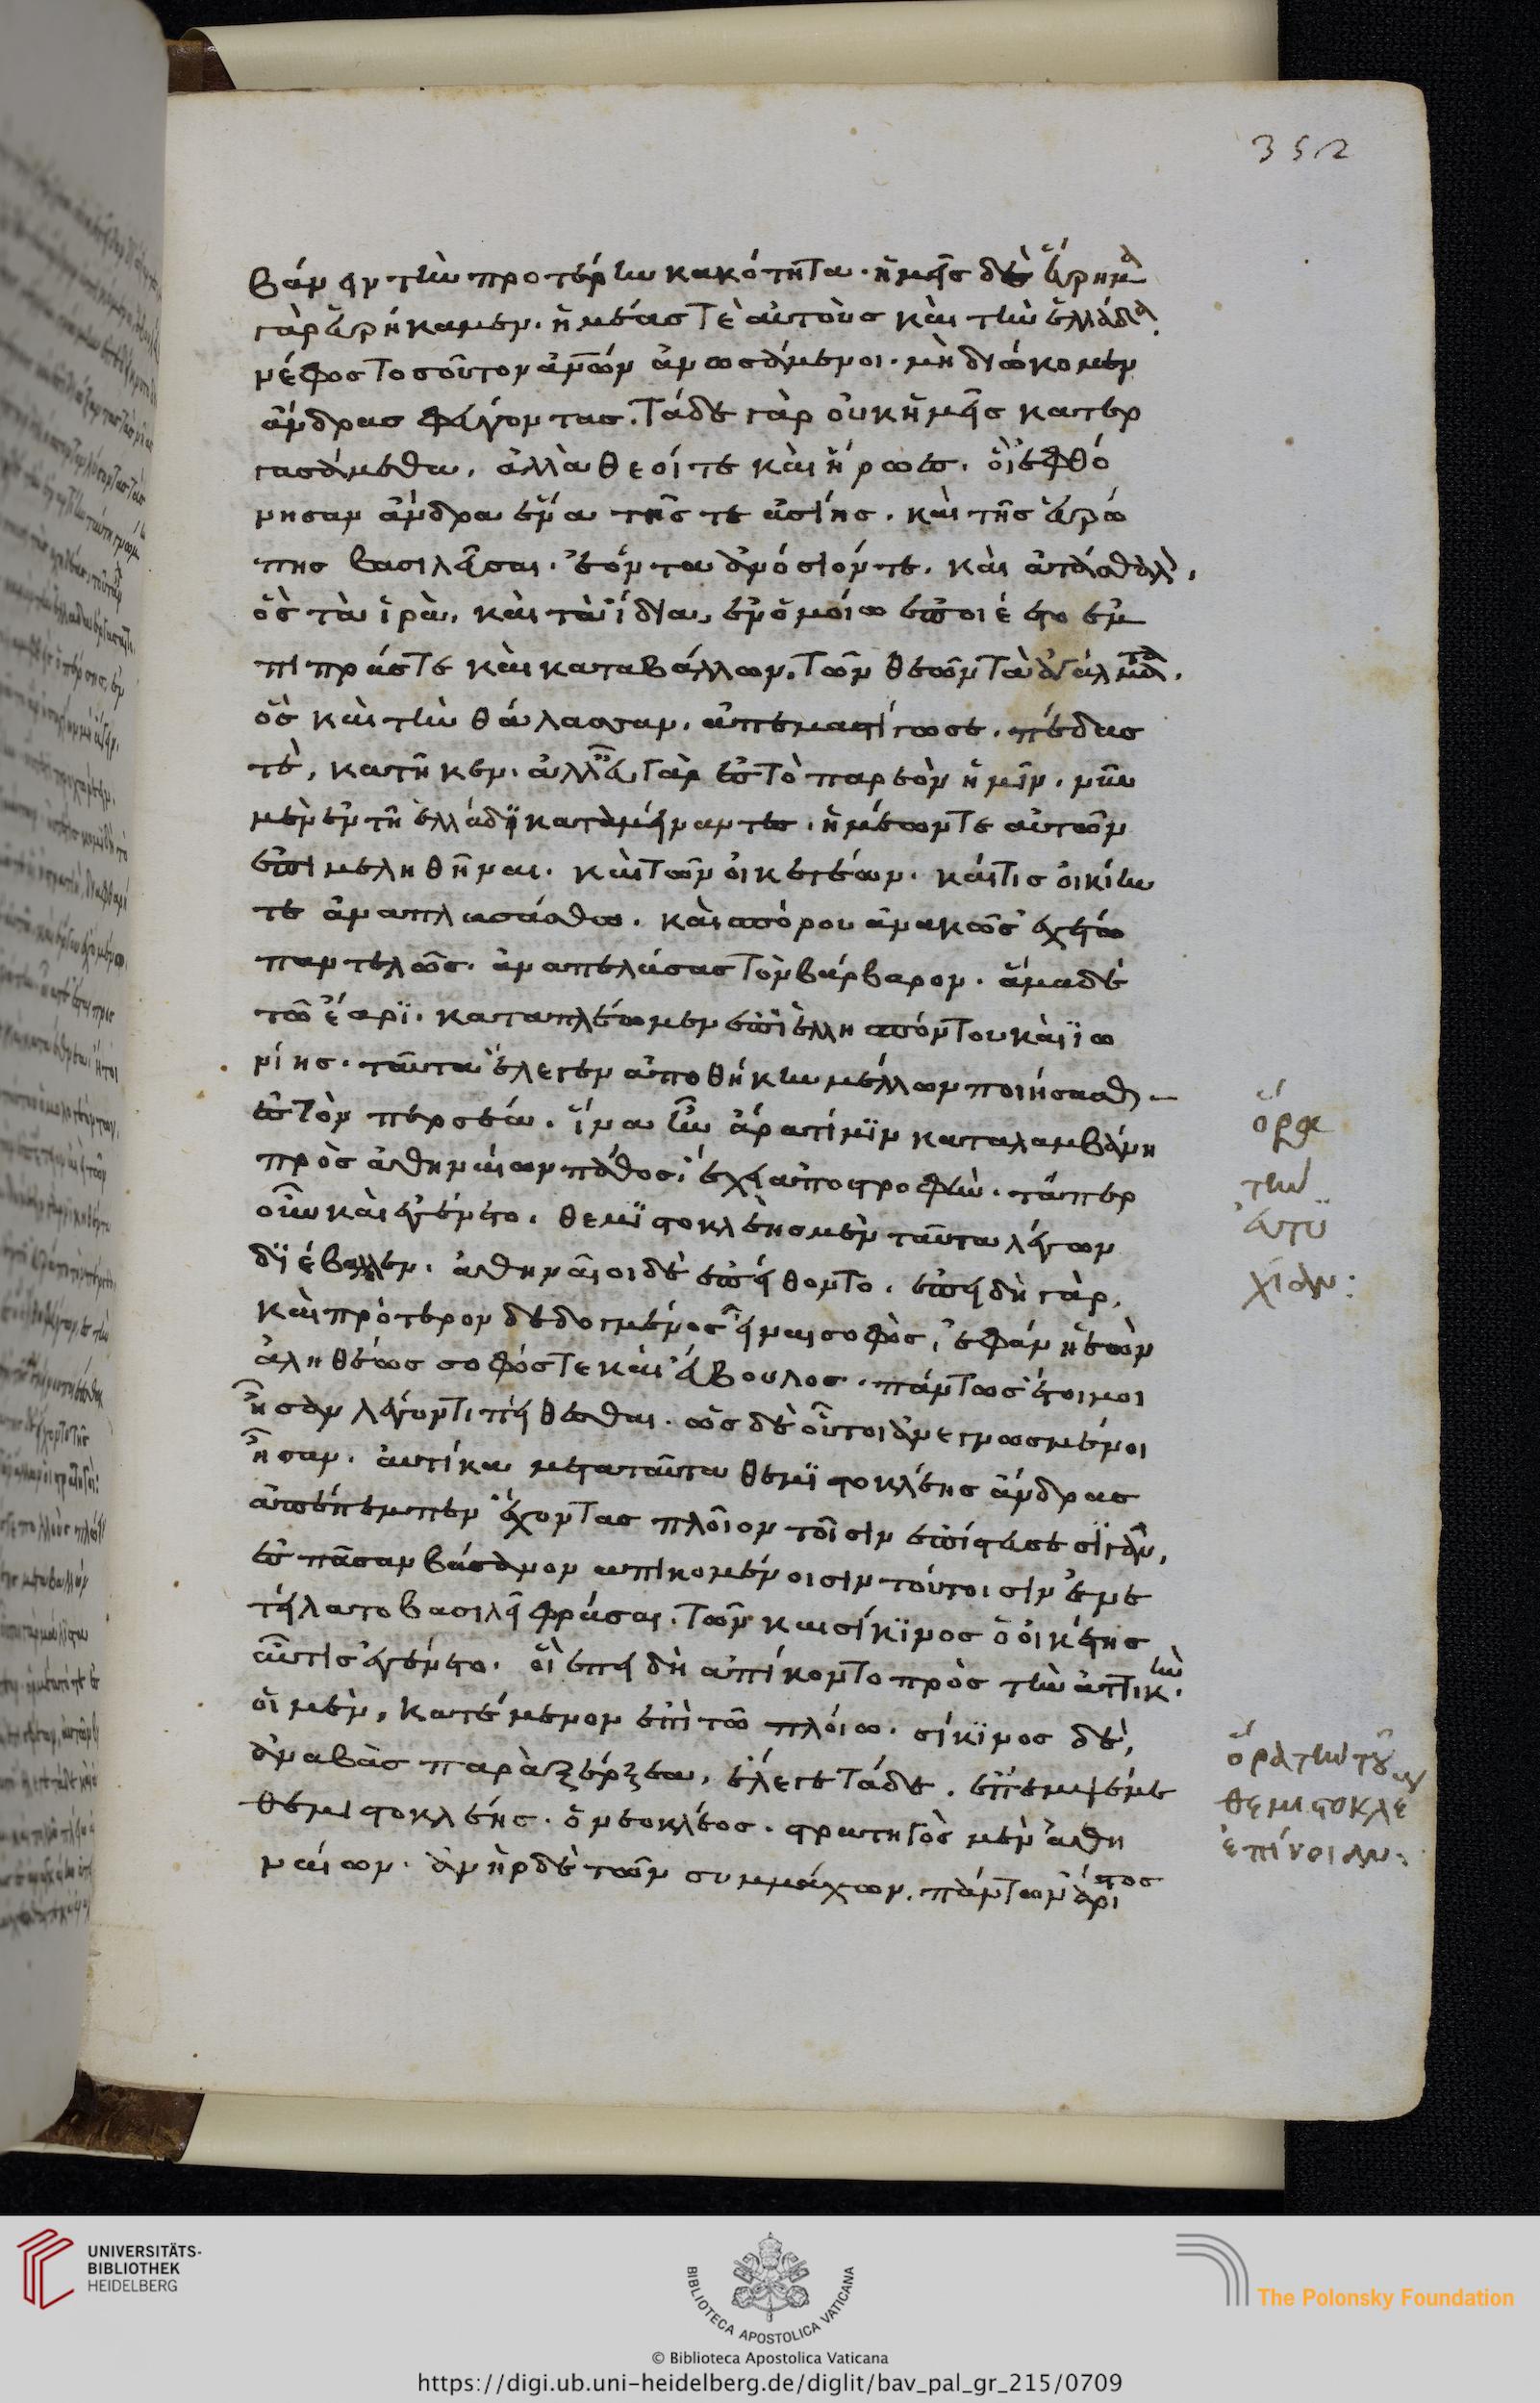 352
βάνειν τὴν προτέρην κακότητα. ἡμεῖς δὲ εὕρημα
γὰρ εὑρήκαμεν. ἡμέας τὲ αὐτοὺς καὶ τὴν ἑλλάδα.
νέφος τοσοῦτον ἀνῶν ἀνωσάμενοι. μὴ διώκομεν
ἄνδρας φεύγοντας. τάδε γὰρ οὐκ ἡμεῖς κατερ
γασάμεθα, ἀλλὰ θεοί τε καὶ ἥρωες. οἳ ἐφθό
νησαν ἄνδρα ἕνα τῆς τε ἀσίης. καὶ τῆς εὐρώ
πης βασιλεῦσαι. ἐόντα ἀνόσιόν τε. καὶ ἀτάσθαλον,
ὃς τὰ ἱρὰ, καὶ τὰ ἴδια, ἐν ὁμοίω ἐποιέετο ἐμ
πιπράς τε καὶ καταβάλλων. τῶν θεῶν τὰ ἀγάλματα.
ὃς καὶ τὴν θάλασσαν. ἀπεμαστίγωσε. πέδας
τὲ, κατῆκεν. ἀλλ' εὖ γὰρ ἐς τὸ παρεὸν ἡμῖν. νῦν
μὲν ἐν τῆ ἑλλάδϊ καταμείναντες. ἡμέων τε αὐτῶν
ἐπιμεληθῆναι. καὶ τῶν οἰκετέων. καί τις οἰκίην
τε ἀναπλασάσθω. καὶ σπόρου ἀνακῶς ἐχέτω
παντελῶς. ἀναπελάσας τὸν βάρβαρον. ἅμα δὲ
τῶ ἔαρϊ. καταπλέωμεν ἐπὶ ἑλλησπόντου καὶ ἰω
νίης. ταῦτα ἔλεγεν ἀποθήκην μέλλων ποιήσασθαι
ἐς τὸν πέρσεα. ἵνα ἢν ἄρα τί μϊν καταλαμβάνη
πρὸς ἀθηναίων πάθος, ἔχη ἀποστροφήν. τάπερ
οὖν καὶ ἐγένετο. θεμϊστοκλέης μὲν ταῦτα λέγων
δϊέβαλλεν. ἀθηναῖοι δὲ ἐπείθοντο. ἐπειδὴ γὰρ,
καὶ πρότερον δεδογμένος εἶναι σοφὸς, ἐφάνη ἐὼν
ἀληθέως σοφός τε καὶ εὔβουλος. πάντως ἕτοιμοι
ἦσαν λέγοντι πείθεσθαι. ὡς δὲ οὗτοι ἀνεγνωσμένοι
ἦσαν. αὐτίκα μετα ταῦτα θεμϊστοκλέης ἄνδρας
ἀπέπεμπεν ἔχοντας πλοῖον τοῖσιν ἐπίστευε σϊγᾶν,
ἐς πᾶσαν βάσανον ἀπικομένοισιν τούτοισιν ἐνε
τείλατο βασιλεῖ φράσαι. τῶν καὶ σίκϊνος ὁ οἰκέτης
αὖτις ἐγένετο. οἳ ἐπειδὴ ἀπίκοντο πρὸς τὴν ἀττικὴν.
οἱ μὲν, κατέμενον ἐπὶ τῶ πλοίω. σίκϊνος δὲ,
ἀναβὰς παρὰ ξέρξεα, ἔλεγε τάδε. ἔπεμψέ με
θεμιστοκλέης. ὁ νεοκλέος. στρατηγὸς μὲν ἀθη
ναίων. ἀνὴρ δὲ τῶν συμμάχων. πάντων ἄριστος
ὅρα
τὴν
εὐτυ
χίαν:
ὅρα τὴν τοῦ
θεμιστοκλέους
ἐπίνοιαν:
UNIVERSITÄTS-
BIBLIOTHEK
HEIDELBERG
BIBLIOTECA APOSTOLICA VATICANA
The Polonsky Foundation
© Biblioteca Apostolica Vaticana
https://digi.ub.uni-heidelberg.de/diglit/bav_pal_gr_215/0709